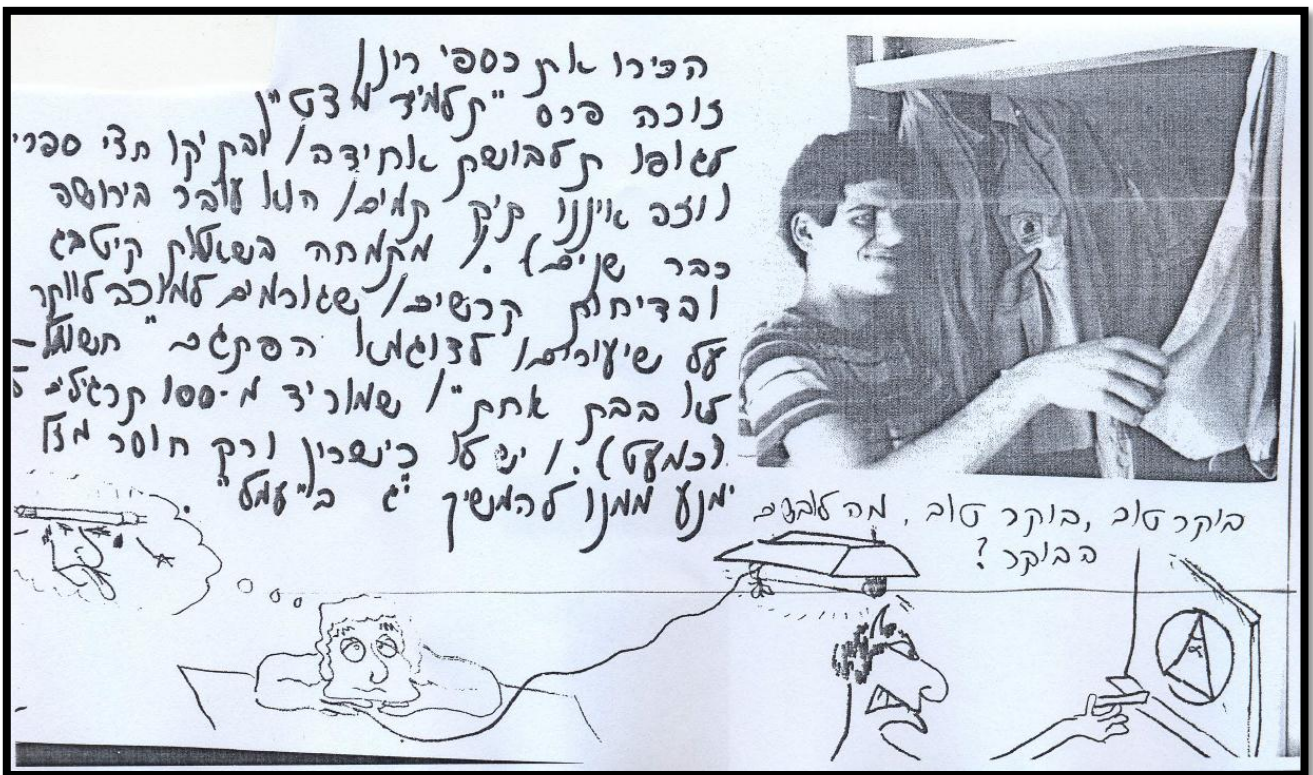 הכירו את כספי רינן
זוכה פרס "תלמיד מצטיין
לגופו תלבושת אחידה, ובתיקו חצי ספריה
(וזה איננו תיק תמים, הוא עובר בירושה
כבר שנים). מתמחה בשאלות קיטבג
ובדיחות קרשים, שגורמים למוכה לוותר
על שיעורים, לדוגמא הפתגם "חשמל-
לא בבת אחת", שמוריד מ-200 תרגילים ל
(כמעט). יש לו כישרון ורק חוסר מזל
ימנע ממנו להמשיך י"ג ב"עמל"
בוקר טוב, בוקר טוב, מה לובשים
הבוקר?